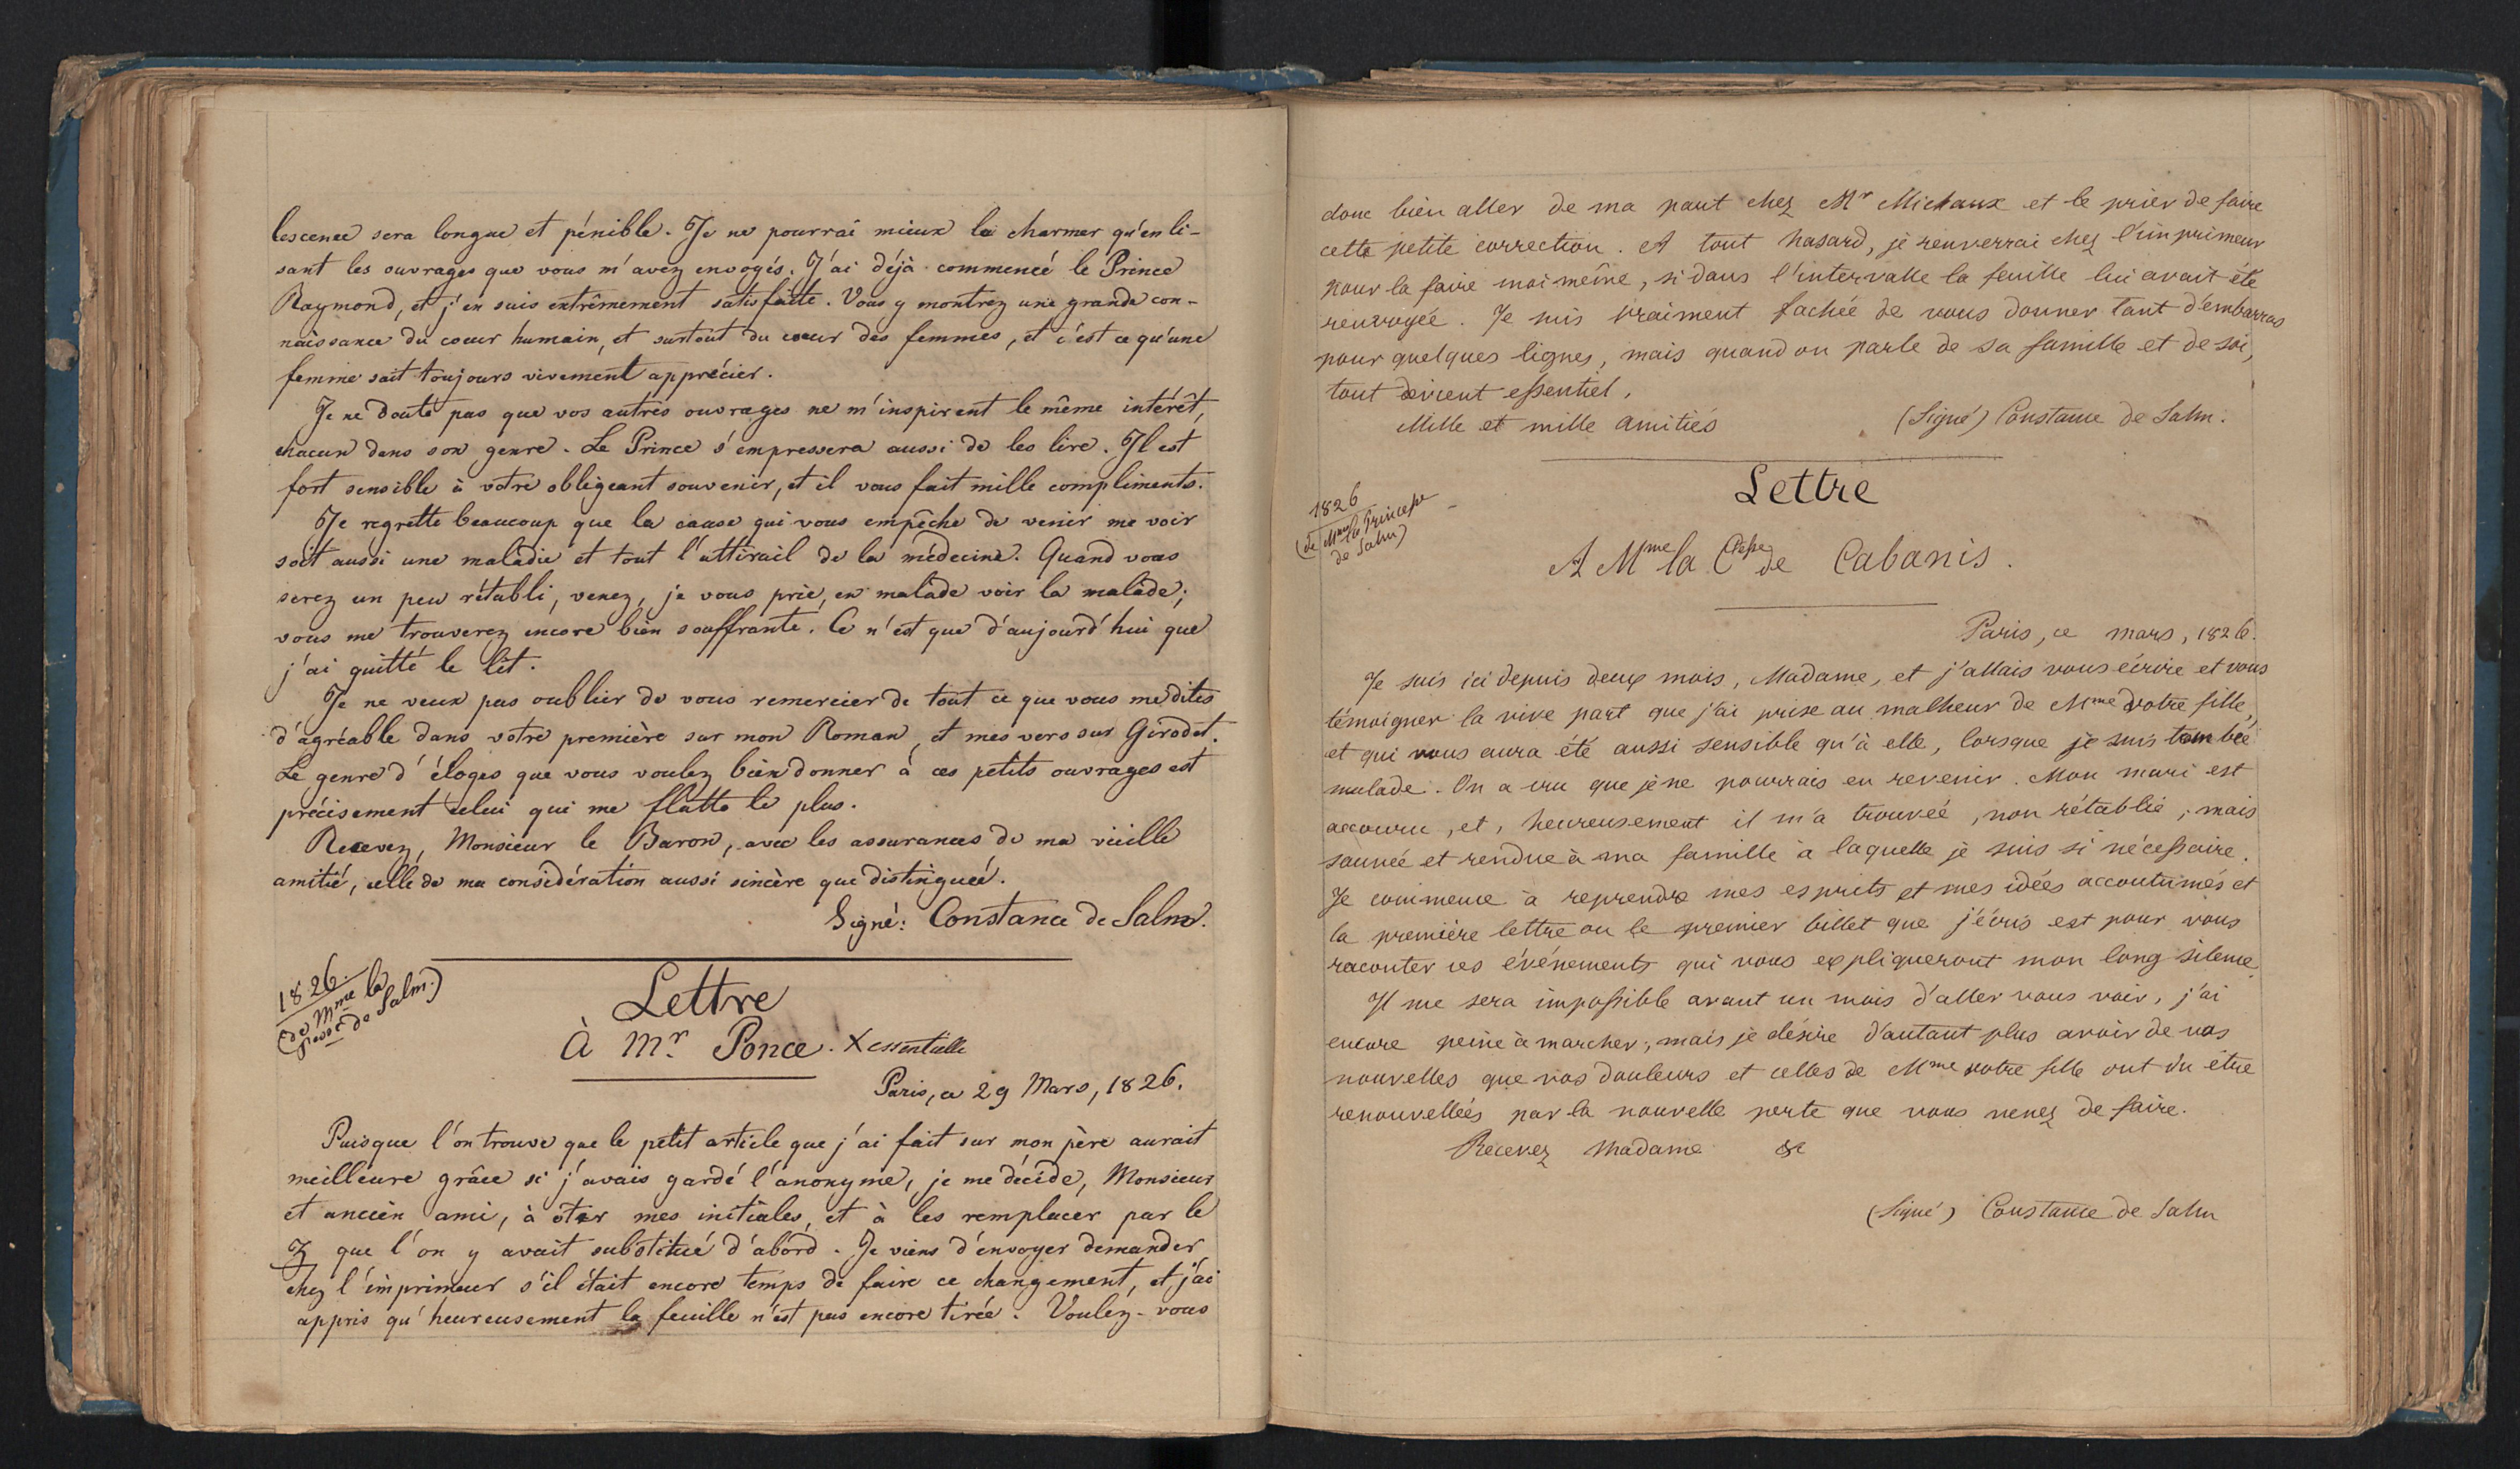 lescence sera longue et pénible. Je ne pourrai mieux la charmer qu'en li-
sant les ouvrages que vous m'avez envoyés. J'ai déjà commencé le Prince
Raymond, et j'en suis extrêmement satisfaite. Vous y montrez une grande con-
naissance du coeur humain, et surtout du coeur des femmes, et c'est ce qu'une
femme sait toujours vivement apprécier.
Je ne doute pas que vos autres ouvrages ne m'inspirent le même intérêt,
chacun dans son genre. Le Prince s'empressera aussi de les lire. Il est
fort sensible à votre obligeant souvenir, et il vous fait mille compliments.
Je regrette beaucoup que la cause qui vous empêche de venir me voir
soit aussi une maladie et tout l'attirail de la médecine. Quand vous
serez un peu rétabli, venez, je vous prie, en malade voir la malade;
vous me trouverez encore bien souffrante. Ce n'est que d'aujourd'hui que
j'ai quitté le lit.
Je ne veux pas oublier de vous remercier de tout ce que vous me dites
d'agréable dans votre première sur mon Roman, et mes vers sur Girodet.
Le genre d'éloges que vous voulez bien donner à ces petits ouvrages est
précisement celui qui me flatte le plus.
Recevez, Monsieur le Baron, avec les assurances de ma vieille
amitié, celle de ma considération aussi sincère que distinguée.
Signé: Constance de Salm.
1826.
(de Mme la
Pcesse de Salm.)
Lettre
À Mr. Ponce. X essentielle
Paris, ce 29 Mars, 1826.
Puisque l'on trouve que le petit article que j'ai fait sur mon père aurait
meilleure grâce si j'avais gardé l'anonyme, je me décide, Monsieur
et ancien ami, à ôter mes initiales, et à les remplacer par le
Z que l'on y avait substitué d'abord. Je viens d'envoyer demander
chez l'imprimeur s'il était encore temps de faire ce changement, et j'ai
appris qu'heureusement la feuille n'est pas encore tirée. Voulez-vous
donc bien aller de ma part chez Mr Michaux et le prier de faire
cette petite correction. A tout hasard, je renverrai chez l'imprimeur
pour la faire moi même, si dans l'intervalle la feuille lui avait été
renvoyée. Je suis vraiment fachée de vous donner tant d'embarras
pour quelques lignes, mais quand on parle de sa famille et de soi,
tout devient essentiel.
Mille et mille amitiés (Signé) Constance de Salm.
1826
(de Mme la Princesse
de Salm)
Lettre
A Mme la Ctesse de Cabanis.
Paris, ce mars, 1826.
Je suis ici depuis deux mois, Madame, et j'allais vous écrire et vous
témoigner la vive part que j'ai prise au malheur de Mme votre fille,
et qui vous aura été aussi sensible qu'à elle, lorsque je suis tombée
malade. On a cru que je ne pourrais en revenir. Mon mari est
accouru, et, heureusement il m'a trouvée, non rétablie, mais
sauvée et rendue à ma famille à laquelle je suis si nécessaire.
Je commence à reprendre mes esprits et mes idées accoutumés et
la première lettre ou le premier billet que j'écris est pour vous
raconter ces événements qui vous expliqueront mon long silence.
Il me sera impossible avant un mois d'aller vous voir, j'ai
encore peine à marcher, mais je désire d'autant plus avoir de vos
nouvelles que vos douleurs et celles de Mme votre fille ont du être
renouvellées par la nouvelle perte que vous venez de faire.
Recevez Madame &c
(Signé) Constance de Salm